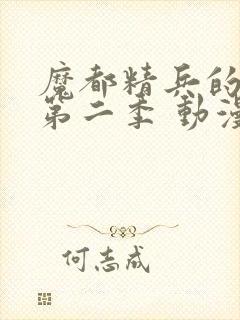 魔都精兵的
第二季 動漫
何志成